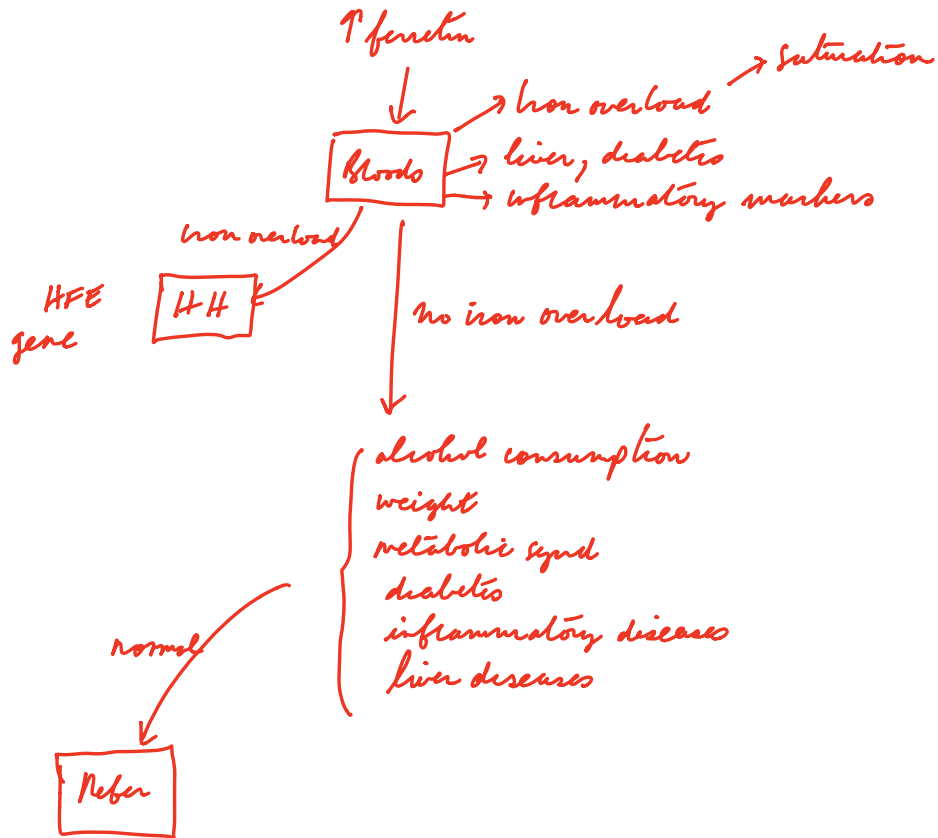 ↑ ferretin
Bloods
Iron overload
saturation
liver, diabetis
inflammatory markers
iron overload
HH
HFE
gene
no iron overload
alcohol consumption
weight
metabolic synd
diabetis
inflammatory diseases
liver diseases
normal
Refer